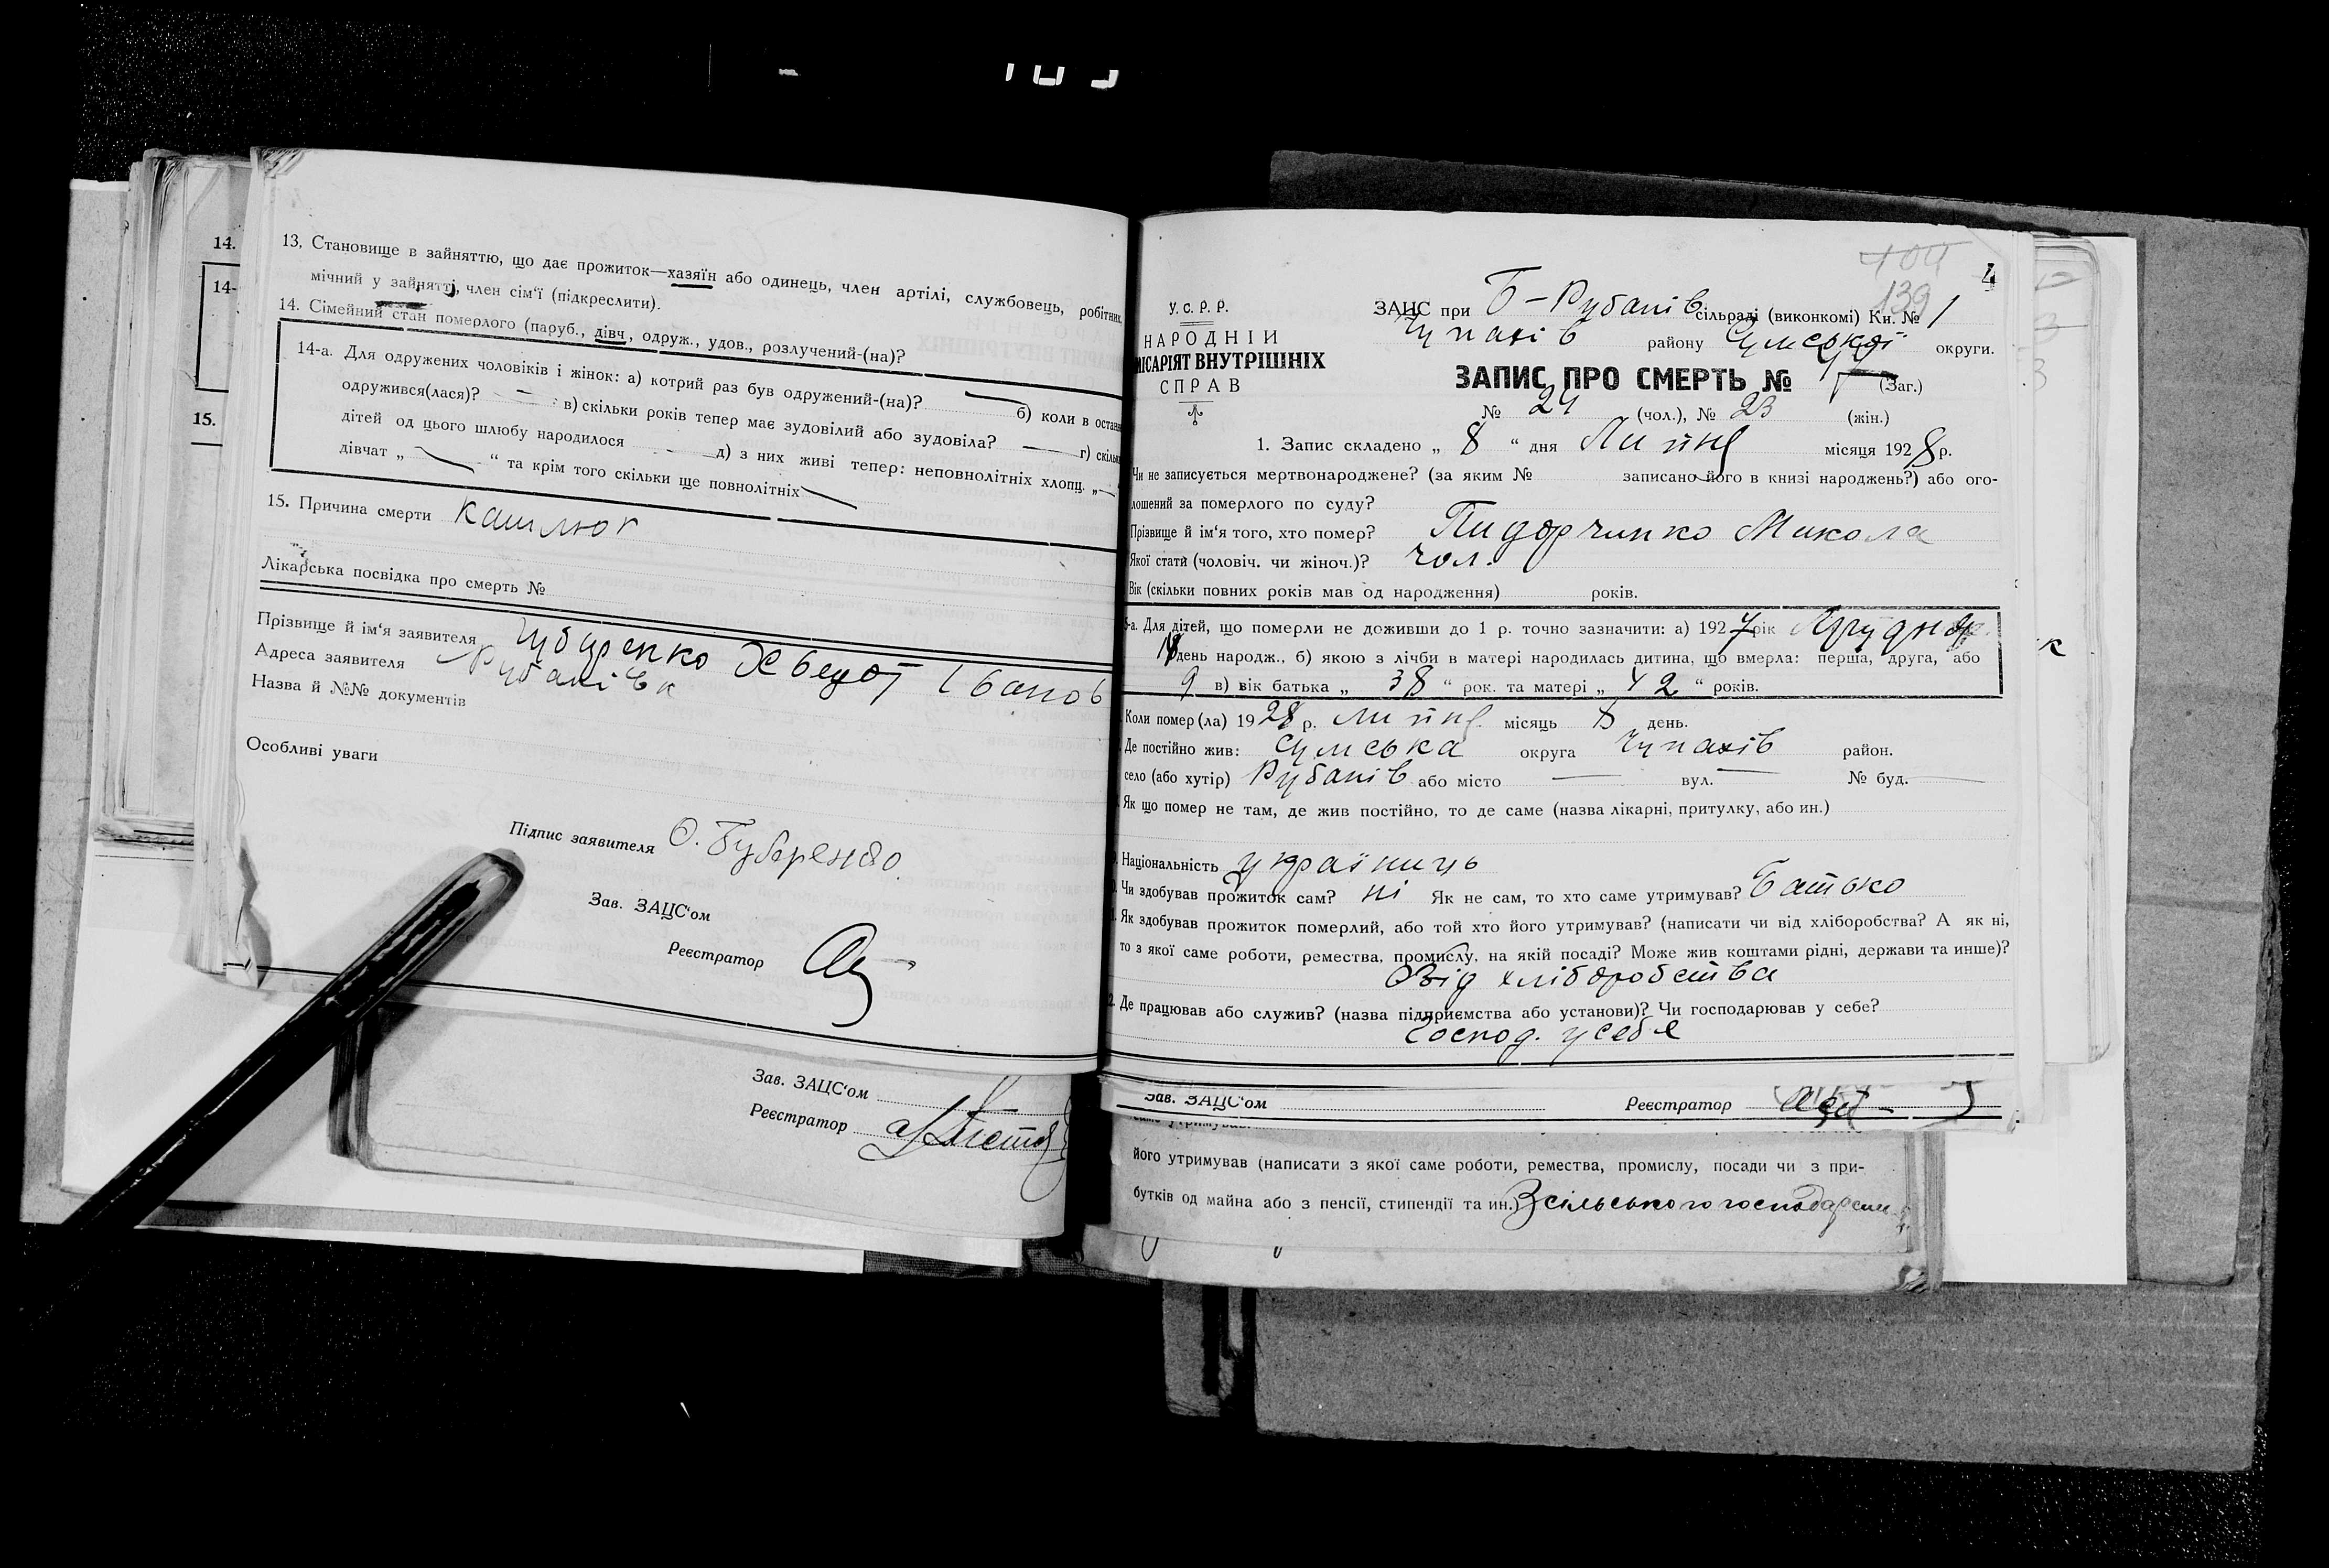 14.
14-
15.
13. Становище в зайняттю, що дає прожиток—хазяїн або одинець, член артілі, службовець, робітник,
мічний у зайнятті, член сім'ї (підкреслити).
14. Сімейний стан померлого (паруб., дівч., одруж., удов., розлучений-(на)?
14-а. Для одружених чоловіків і жінок: а) котрий раз був одружений-(на)? б) коли в остан
одружився(лася)? в) скільки років тепер має зудовілий або зудовіла? г) скільк
дітей од цього шлюбу народилося д) з них живі тепер: неповнолітніх хлопц. „
дівчат „ “ та крім того скільки ще повнолітніх
15. Причина смерти кашлюк
Лікарська посвідка про смерть №
Прізвище й ім'я заявителя
Адреса заявителя Рубанівк
Назва й №№ документів
Особливі уваги
Підпис заявителя
Зав. ЗАЦС'ом
Реєстратор
Зав. ЗАЦС'ом
Реєстратор
4
139
У.С.Р.Р.
НАРОДНІЙ
ІСАРІЯТ ВНУТРІШНІХ
СПРАВ
ЗАЦС при Б-Рубанів сільраді (виконкомі) Кн. № 1
Чупахів району Сумської округи.
ЗАПИС ПРО СМЕРТЬ № (Заг.)
№ 24 (чол.), № 23 (жін.)
1. Запис складено „ 8 “ дня Липня місяця 1928 р.
Чи не записується мертвонароджене? (за яким № записано його в книзі народжень?) або ого-
лошений за померлого по суду?
Прізвище й ім'я того, хто помер? Пидорчинко Микола
Якої статі (чоловіч. чи жіноч.)? чол.
Вік (скільки повних років мав од народження) років.
-а. Для дітей, що померли не доживши до 1 р. точно зазначити: а) 1927 рік Грудня
день народж., б) якою з лічби в матері народилась дитина, що вмерла: перша, друга, або
9 в) вік батька „ 38 “ рок. та матері „ 42 “ років.
Коли помер(ла) 1928 р. Липня місяць 8 день.
Де постійно жив: Сумська округа Чупахів район.
село (або хутір) Рубанів або місто вул. № буд.
Як що помер не там, де жив постійно, то де саме (назва лікарні, притулку, або ин.)
Національність українць
Чи здобував прожиток сам? ні Як не сам, то хто саме утримував? Батько
Як здобував прожиток померлий, або той хто його утримував? (написати чи від хліборобства? А як ні,
то з якої саме роботи, ремества, промислу, на якій посаді? Може жив коштами рідні, держави та инше)?
Від хліборобства
Де працював або служив? (назва підприємства або установи)? Чи господарював у себе?
Господ. у себе
Зав. ЗАЦС'ом Реєстратор
його утримував (написати з якої саме роботи, ремества, промислу, посади чи з при-
бутків од майна або з пенсії, стипендії та ин.) З сільського господарств